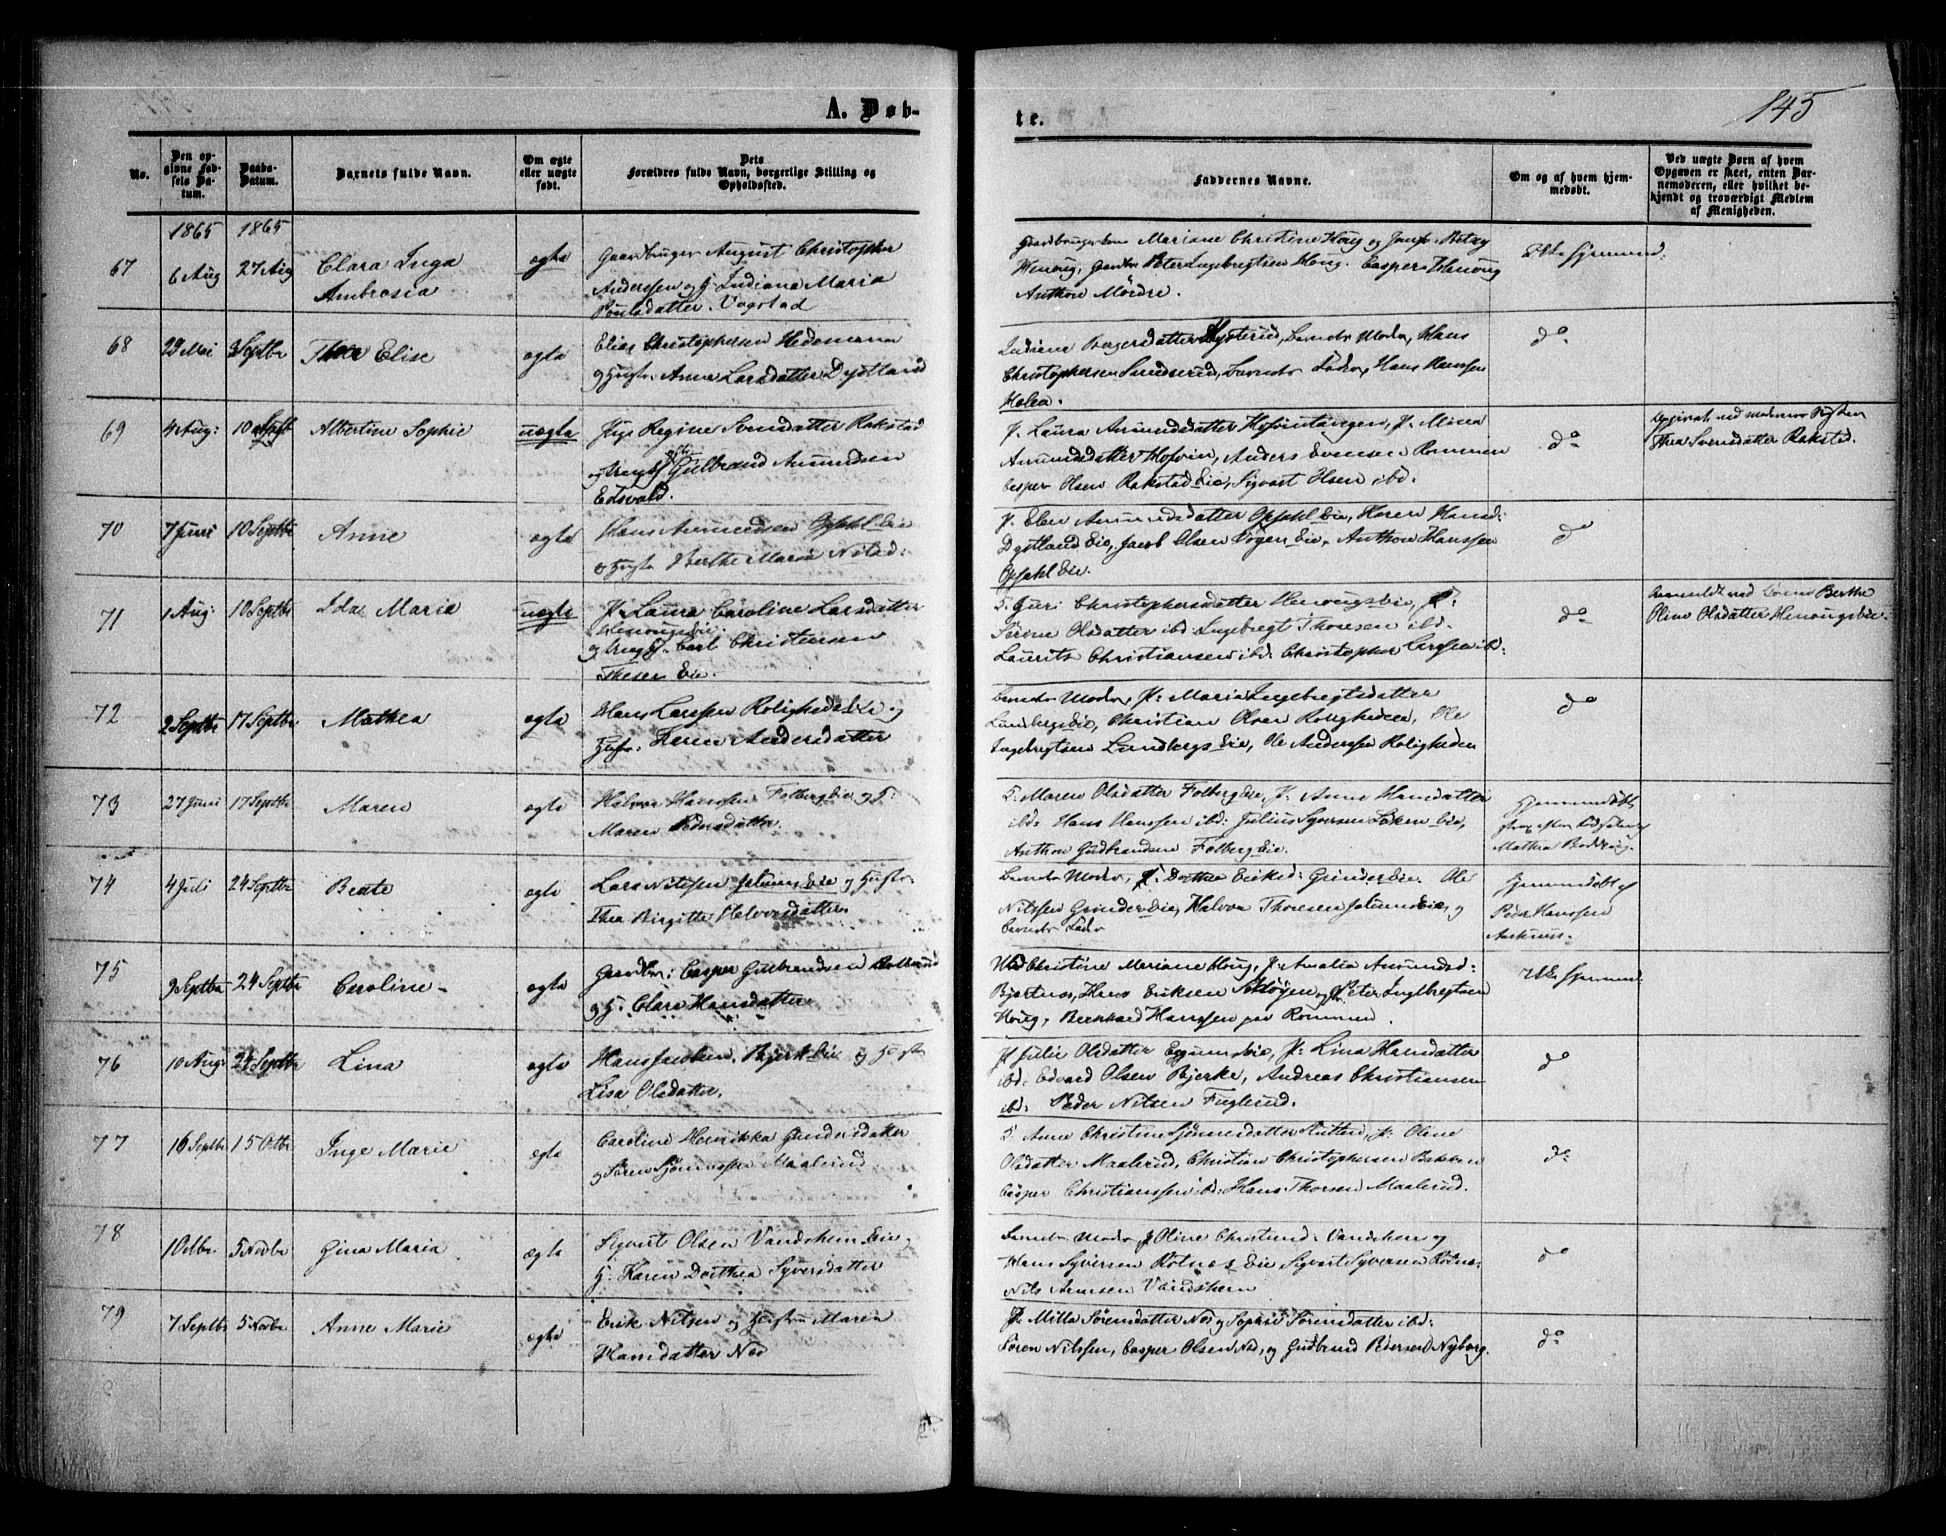 A. Døb-
te.
145
No.
Den op-
givne Fød-
sels Da-
tum.
Daabs-
Datum.
Barnets fulde Navn.
Om ægte
eller uægte
født.
Dets
Forældres fulde Navn, borgerlige Stilling og
Opholdssted.
Faddernes Navne.
Om og af hvem hjem-
medøbt.
Ved uægte Børn af hvem
Opgaven er skeet, enten Bar-
nemoderen, eller hvilket be-
kjendt og troværdigt Medlem
af Menigheden.
1865 1865
67 6 Aug 27 Aug Clara Inga
Ambrosia
ægte
Gaardbruger August Christopher
Andersen og H. Indiana Maria
Poulsdatter. Vogstad
Mariane Christine Houg og
Peter Ingebregtsen Houg. Casper Henoug
Anthon Mördre.
68 29 Mai 3 Septbr Thea Elise
ægte
Elias Christophersen Hedemann
og Hustr. Anne Larsdatter Dystland
Indiane Borgersdatter Barnets Moder, Hans
Christophersen Barnets Fader, Hans Hanssen
Holen.
do
69 4 Aug: 10 Septbr Albertine Sophie
uægte
Pige Regine Svensdatter Rakstad
og Gulbrand Amundsen
Edsvold.
P. Laura Amundsdatter P. Mina
Amundsdatter Hofvin, Anders Evensen Rommen
Casper Olsen Rakstad Eie, Sigvart Olsen ibd.
do
Opgivet ved Moderens Søster
Thea Svensdatter Rakstad.
70 7 Juni 10 Septbr Anne
ægte
Hans Amundsen Opsahl Eie
og Hustr. Berthe Maria Nilsd:
P. Elen Amundsdatter Opsahl Eie, Karen Hansd:
Dystland Eie, Jacob Olsen Vogen Eie, Anthon Hanssen
Opsahl Eie.
do
71 1 Aug: 10 Septbr Ida Maria
uægte
P. Laura Caroline Larsdatter
Henougseie
og Carl Christensen
Theser Eie.
Guri Christophersdatter Henougseie, P:
Sørine Olsdatter ibd. Ingebregt Thoresen ibd.
Laurits Christiansen ibd: Christopher Larssen ibd:
do
Anmeldt ved Berthe
Oline Olsdatter Henougseie.
72 2 Septbr 17 Septbr Mathea
ægte
Hans Larssen Rolighedseie og
Hustr: Karen Andersdatter
Barnets Moder, P: Maria Ingebregtsdatter
Lundbergseie, Christian Olsen Rolighedseie, Ole
Ingebregtsen Lundbergs Eie, Ole Andersen Roligheden
do
73 27 Juni 17 Septbr Maren
ægte
Halvor Hanssen Folbergeie og H:
Maren Pedersdatter
Maren Olsdatter Folbergeie, P. Anne Hansdatter
ibd. Hans Hanssen ibd: Julius Syversen Løken Eie,
Anthon Gudbrandsen Folbergeie.
Hjemmedøbt
strax efter Fødselen af
Mathea
74 4 Juli 24 Septbr Beate
ægte
Lars Nilssen Eie og Hustr.
Thea Birgitte Halvorsdatter
Barnets Moder, P. Dorthea Eriksd: Grindereie. Ole
Nilssen Grindereie, Halvor Thoresen og
Barnets Fader
Hjemmedøbt af
Peder Hanssen
75 9 Septbr 24 Septbr Caroline
ægte
Gaardbr: Casper Gulbrandsen
og H: Clara Hansdatter
Christine Mariane Houg, P. Amalia Amundsd:
Bjertnæs, Hans Eriksen og Peter Ingebregtsen
Houg, Bernhard Hanssen paa Rommen.
Ikke hjemmed.
76 10 Aug: 24 Septbr Lina
ægte
Hans Jacobsen, Bjerk Eie og Hustr
Lisa Olsdatter.
P. Julie Olsdatter P: Lina Hansdatter
ibd: Edvard Olsen Bjerke, Andreas Christiansen
ibd: Peder Nilsen Fuglerud.
do
77 16 Septbr 15 Octbr Inge Marie
ægte
Caroline Henrikka Gundersdatter
og Maalerud
Anne Christine P: Oline
Olsdatter Maalerud, Christian Christophersen Bakken
Casper Christianssen ibd: Hans Thorsen Maalerud.
do
78 5 Novbr Gina Maria
ægte
Sigvart Olsen Vandshem Eie og
H. Karen Dorthea Syversdatter
Barnets Moder, P Oline Christiansd: Vandshem og
Hans Syversen Rotnes Eie Sigvart Syversen Rotnes
Nils Arnesen Vandshem
do
79 7 Septbr 5 Novbr Anne Marie
ægte
Erik Nilsen og Hustru Maren
Hansdatter Nes
P. Mitta Sørensdatter Nes og Sophie Sørensdatter ibd:
Søren Nilssen, Casper Olsen Nes, og Gudbrand Pedersen Nyborg.
do